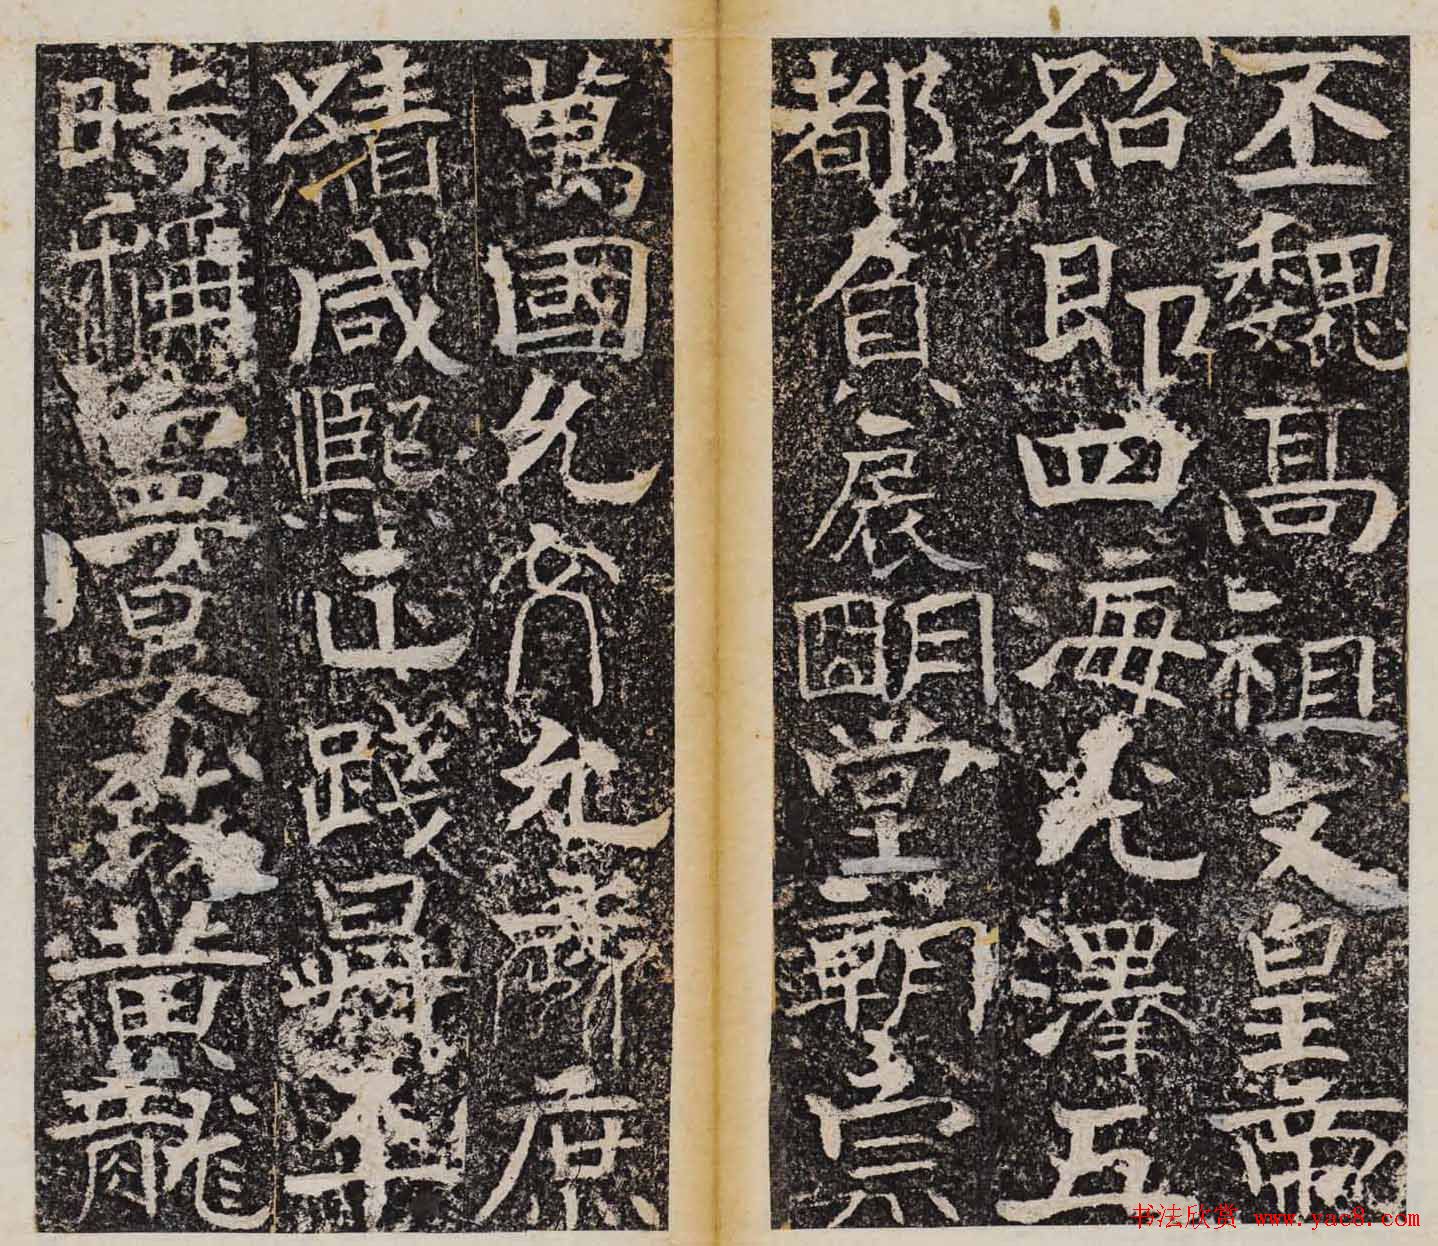 丕魏高祖文皇帝
紹即四海光澤五
都負扆明堂朝宗
萬國允文允武庶
績咸熙正踐昇平
時稱寧晏致黃龍
书法欣赏 www.yac8.com